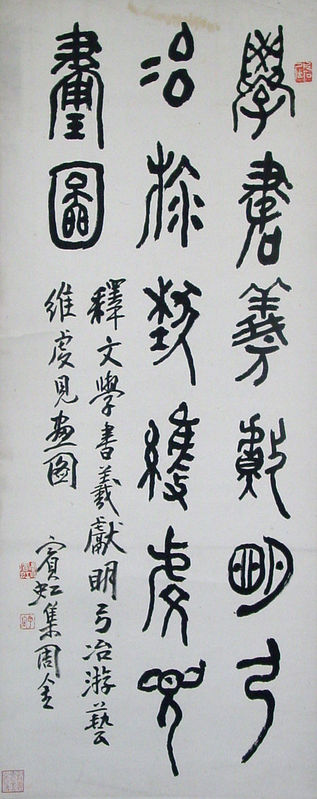 學書羲獻明弓
冶游藝維虔見
畫圖
釋文學書羲獻明弓冶游藝
維虔見畫圖
賓虹集周金